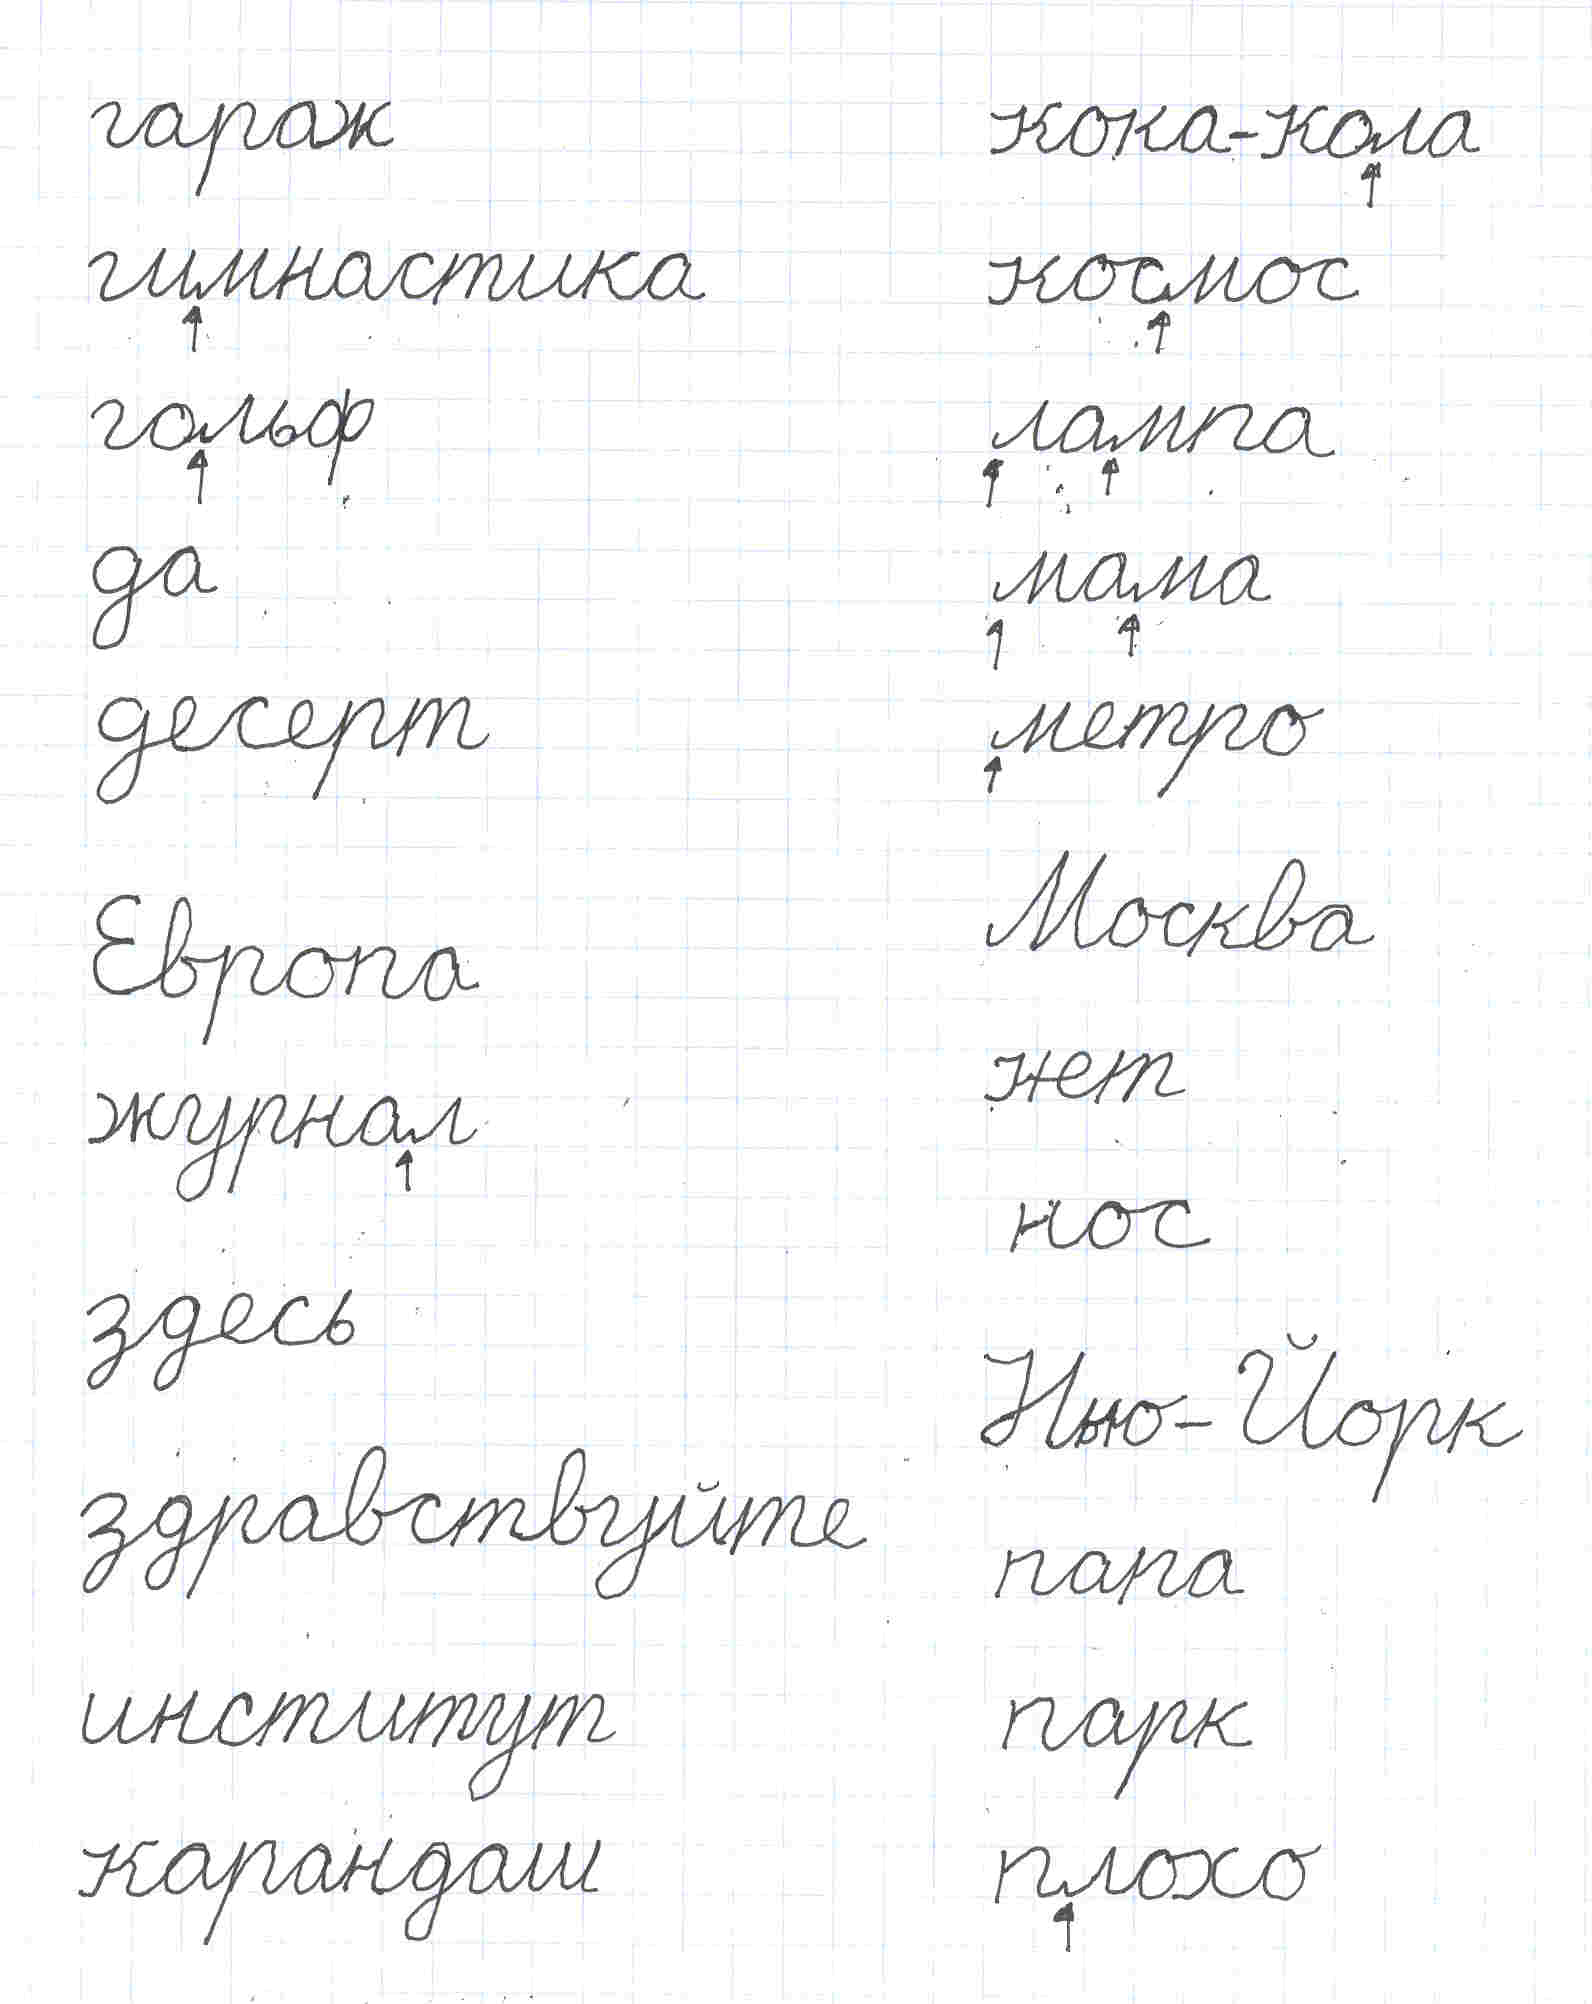 гараж
гимнастика
гольф
да
десерт
Европа
журнал
здесь
здравствуйте
институт
карандаш
кока-кола
космос
лампа
мама
метро
Москва
нет
нос
Нью-Йорк
папа
парк
плохо